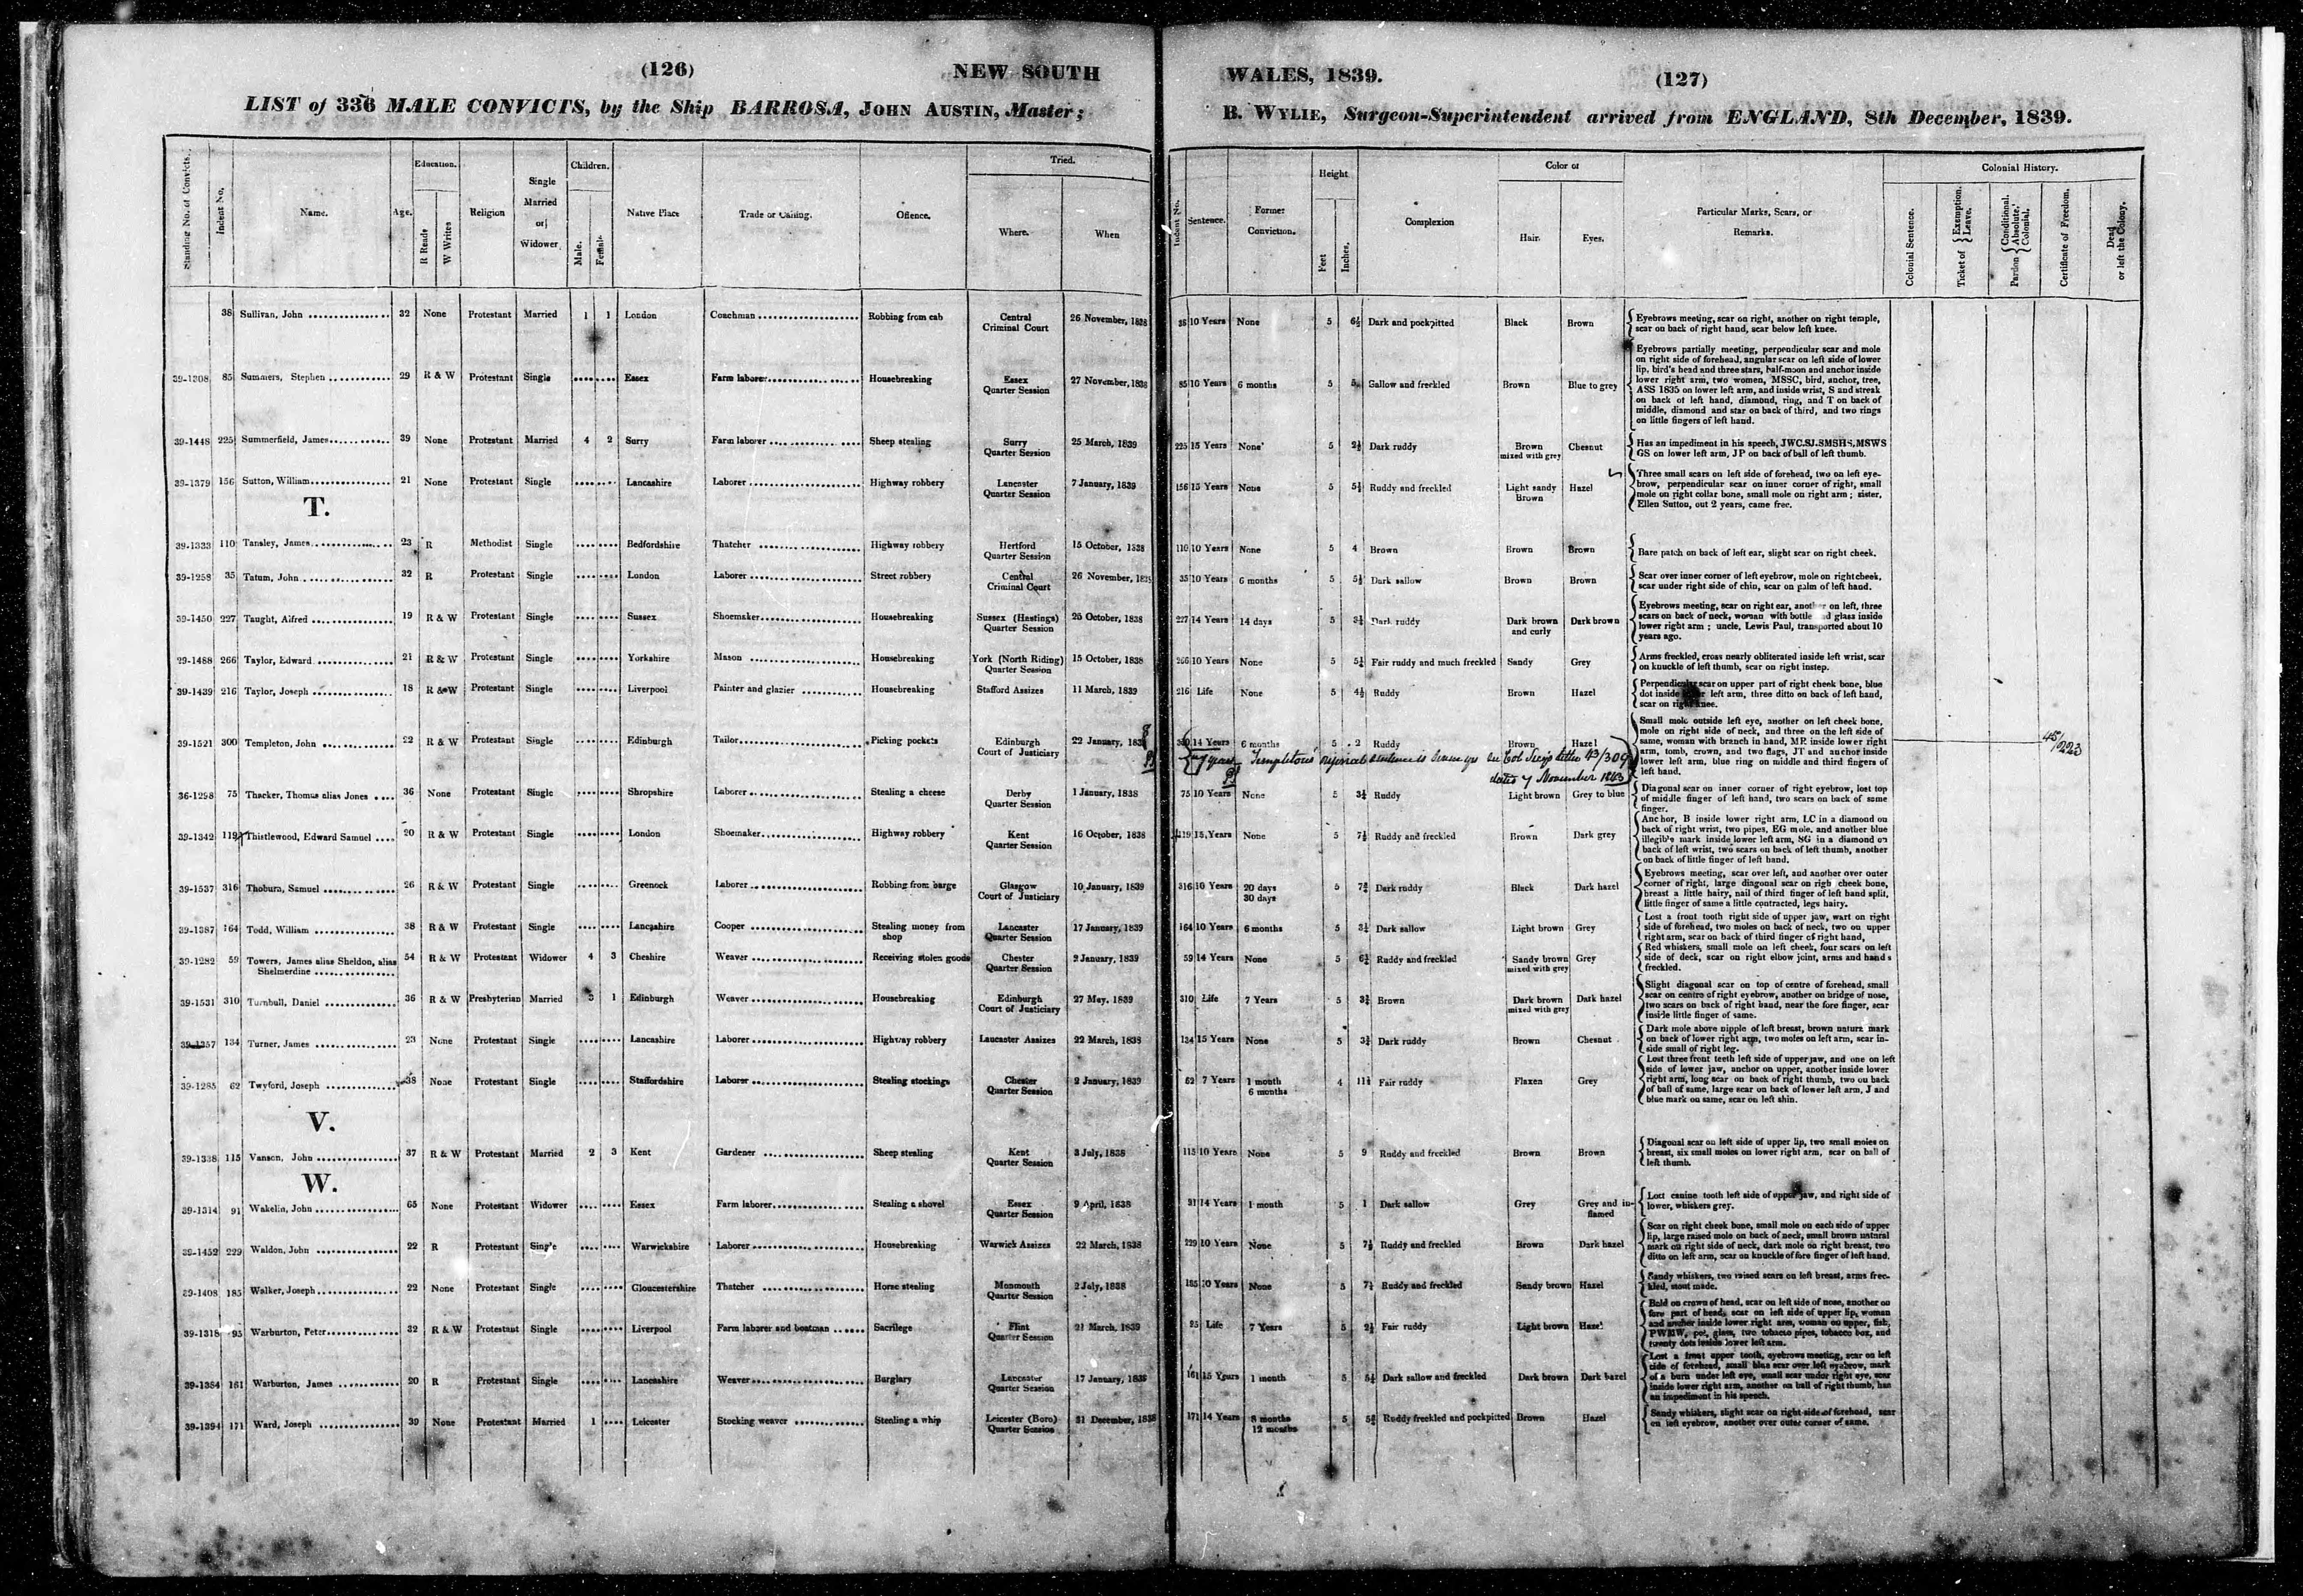 (126) NEW SOUTH WALES, 1839. (127)
LIST of 336 MALE CONVICTS, by the Ship BARROSA, JOHN AUSTIN, Master; B. WYLIE, Surgeon-Superintendent arrived from ENGLAND, 8th December, 1839.
Standing No. of Convicts. Indent No. Name. Age. Education. R Reads W Writes Religion Single Married or Widower Children. Male. Female Native Place Trade or Calling. Offence. Tried. Where. When
Indent No. Sentence. Former Conviction. Height Feet Inches. Complexion Color of Hair. Eyes. Particular Marks, Scars, or Remarks. Colonial History. Colonial Sentence. Ticket of { Exemption. Leave. Pardon { Conditional. Absolute. Colonial. Certificate of Freedom. Dead or left the Colony.
38 Sullivan, John 32 None Protestant Married 1 1 London Coachman Robbing from cab Central Criminal Court 26 November, 1838
10 Years None 5 6½ Dark and pockpitted Black Brown
Eyebrows meeting, scar on right, another on right temple,
scar on back of right hand, scar below left knee.
39-1308 85 Summers, Stephen 29 R & W Protestant Single Essex Farm laborer Housebreaking Essex Quarter Session 27 November, 1838
85 10 Years 6 months 5 Sallow and freckled Brown Blue to grey
Eyebrows partially meeting, perpendicular scar and mole
on right side of forehead, angular scar on left side of lower
lip, bird's head and three stars, half-moon and anchor inside
lower right arm, two women, MSSC, bird, anchor, tree,
ASS 1835 on lower left arm, and inside wrist, S and streak
on back of left hand, diamond, ring, and T on back of
middle, diamond and star on back of third, and two rings
on little fingers of left hand.
39-1448 225 Summerfield, James 39 None Protestant Married 4 2 Surry Farm laborer Sheep stealing Surry Quarter Session 25 March, 1839
225 15 Years None 5 Dark ruddy Brown mixed with grey Chesnut
Has an impediment in his speech, JWC.SJ.SMSHS, MSWS
GS on lower left arm, JP on back of ball of left thumb.
39-1379 156 Sutton, William 21 None Protestant Single Lancashire Laborer Highway robbery Lancaster Quarter Session 7 January, 1839
156 15 Years None 5 Ruddy and freckled Light sandy Brown Hazel
Three small scars on left side of forehead, two on left eye-
brow, perpendicular scar on inner corner of right, small
mole on right collar bone, small mole on right arm; sister,
Ellen Sutton, out 2 years, came free.
T.
39-1333 110 Tansley, James 23 R Methodist Single Bedfordshire Thatcher Highway robbery Hertford Quarter Session 15 October, 1838
110 10 Years None 5 4 Brown Brown Brown
Bare patch on back of left ear, slight scar on right cheek.
39-1258 35 Tatum, John 32 R Protestant Single London Laborer Street robbery Central Criminal Court 26 November, 1838
35 10 Years 6 months 5 Dark sallow Brown Brown
Scar over inner corner of left eyebrow, mole on right cheek,
scar under right side of chin, scar on palm of left hand.
39-1450 227 Taught, Alfred 19 R & W Protestant Single Sussex Shoemaker Housebreaking Sussex (Hastings) Quarter Session 25 October, 1838
227 14 Years 14 days 5 Dark ruddy Dark brown and curly Dark brown
Eyebrows meeting, scar on right ear, another on left, three
scars on back of neck, woman with bottle and glass inside
lower right arm; uncle, Lewis Paul, transported about 10
years ago.
39-1488 266 Taylor, Edward 21 R & W Protestant Single Yorkshire Mason Housebreaking York (North Riding) Quarter Session 15 October, 1838
266 10 Years None 5 Fair ruddy and much freckled Sandy Grey
Arms freckled, cross nearly obliterated inside left wrist, scar
on knuckle of left thumb, scar on right instep.
39-1439 216 Taylor, Joseph 18 R & W Protestant Single Liverpool Painter and glazier Housebreaking Stafford Assizes 11 March, 1839
216 Life None 5 4½ Ruddy Brown Hazel
Perpendicular scar on upper part of right cheek bone, blue
dot inside left arm, three ditto on back of left hand,
scar on right knee.
39-1521 300 Templeton, John 22 R & W Protestant Single Edinburgh Tailor Picking pockets Edinburgh Court of Justiciary 22 January,
300 14 Years 6 months 5 2 Ruddy Brown Hazel
7 years Templeton's original sentence is seven yrs 43/309
dated 7 November 1843
Small mole outside left eye, another on left cheek bone,
mole on right side of neck, and three on the left side of
same, woman with branch in hand, MP. inside lower right
arm, tomb, crown, and two flags, JT and anchor inside
lower left arm, blue ring on middle and third fingers of
left hand.
45/223
36-1298 75 Thacker, Thomas alias Jones 36 None Protestant Single Shropshire Laborer Stealing a cheese Derby Quarter Session 1 January, 1838
75 10 Years None 5 Ruddy Light brown Grey to blue
Diagonal scar on inner corner of right eyebrow, lost top
of middle finger of left hand, two scars on back of same
finger.
39-1342 119 Thistlewood, Edward Samuel 20 R & W Protestant Single London Shoemaker Highway robbery Kent Quarter Session 16 October, 1838
119 15 Years None 5 Ruddy and freckled Brown Dark grey
Anchor, B inside lower right arm, LC in a diamond on
back of right wrist, two pipes, EG mole, and another blue
illegible mark inside lower left arm, SG in a diamond on
back of left wrist, two scars on back of left thumb, another
on back of little finger of left hand.
39-1537 316 Thoburn, Samuel 26 R & W Protestant Single Greenock Laborer Robbing from barge Glasgow Court of Justiciary 10 January, 1839
316 10 Years 20 days 30 days 5 Dark ruddy Black Dark hazel
Eyebrows meeting, scar over left, and another over outer
corner of right, large diagonal scar on righ cheek bone,
breast a little hairy, nail of third finger of left hand split,
little finger of same a little contracted, legs hairy.
39-1387 164 Todd, William 38 R & W Protestant Single Lancashire Cooper Stealing money from shop Lancaster Quarter Session 17 January, 1839
164 10 Years 6 months 5 Dark sallow Light brown Grey
Lost a front tooth right side of upper jaw, wart on right
side of forehead, two moles on back of neck, two on upper
right arm, scar on back of third finger of right hand,
39-1282 59 Towers, James alias Sheldon, alias Shelmerdine 54 R & W Protestant Widower 4 3 Cheshire Weaver Receiving stolen goods Chester Quarter Session 2 January, 1839
59 14 Years None 5 Ruddy and freckled Sandy brown mixed with grey Grey
Red whiskers, small mole on left cheek, four scars on left
side of deck, scar on right elbow joint, arms and hands
freckled.
39-1531 310 Turnbull, Daniel 36 R & W Presbyterian Married 3 1 Edinburgh Weaver Housebreaking Edinburgh Court of Justiciary 27 May, 1839
310 Life 7 Years 5 Brown Dark brown mixed with grey Dark hazel
Slight diagonal scar on top of centre of forehead, small
scar on centre of right eyebrow, another on bridge of nose,
two scars on back of right hand, near the fore finger, scar
inside little finger of same.
39-1357 134 Turner, James 23 None Protestant Single Lancashire Laborer Highway robbery Lancaster Assizes 22 March, 1838
134 15 Years None 5 Dark ruddy Brown Chesnut
Dark mole above nipple of left breast, brown nature mark
on back of lower right arm, two moles on left arm, scar in-
side small of right leg.
39-1285 62 Twyford, Joseph 38 None Protestant Single Staffordshire Laborer Stealing stockings Chester Quarter Session 2 January, 1839
62 7 Years 1 month 6 months 4 Fair ruddy Flaxen Grey
Lost three front teeth left side of upper jaw, and one on left
side of lower jaw, anchor on upper, another inside lower
right arm, long scar on back of right thumb, two on back
of ball of same, large scar on back of lower left arm, J and
blue mark on same, scar on left shin.
V.
39-1338 115 Vanson, John 37 R & W Protestant Married 2 3 Kent Gardener Sheep stealing Kent Quarter Session 3 July, 1838
115 10 Years None 5 9 Ruddy and freckled Brown Brown
Diagonal scar on left side of upper lip, two small moles on
breast, six small moles on lower right arm, scar on ball of
left thumb.
W.
39-1314 91 Wakelin, John 65 None Protestant Widower Essex Farm laborer Stealing a shovel Essex Quarter Session 9 April, 1838
91 14 Years 1 month 5 1 Dark sallow Grey Grey and inflamed
Lost canine tooth left side of upper jaw, and right side of
lower, whiskers grey.
39-1452 229 Waldon, John 22 R Protestant Single Warwickshire Laborer Housebreaking Warwick Assizes 22 March, 1838
229 10 Years None 5 Ruddy and freckled Brown Dark hazel
Scar on right cheek bone, small mole on each side of upper
lip, large raised mole on back of neck, small brown natural
mark on right side of neck, dark mole on right breast, two
ditto on left arm, scar on knuckle of fore finger of left hand.
39-1408 185 Walker, Joseph 22 None Protestant Single Gloucestershire Thatcher Horse stealing Monmouth Quarter Session 2 July, 1838
185 10 Years None 5 Ruddy and freckled Sandy brown Hazel
Sandy whiskers, two raised scars on left breast, arms frec-
kled, stout made.
39-1318 95 Warburton, Peter 32 R & W Protestant Single Liverpool Farm laborer and boatman Sacrilege Flint Quarter Session 21 March, 1839
95 Life 7 Years 5 Fair ruddy Light brown Hazel
Bald on crown of head, scar on left side of nose, another on
fore part of head, scar on left side of upper lip, woman
and anchor inside lower right arm, woman on upper, fish,
PWMW, pot, glass, two tobacco pipes, tobacco box, and
twenty dots inside lower left arm.
39-1384 161 Warburton, James 20 R Protestant Single Lancashire Weaver Burglary Lancaster Quarter Session 17 January, 1838
161 15 Years 1 month 5 Dark sallow and freckled Dark brown Dark hazel
Lost a front upper tooth, eyebrows meeting, scar on left
side of forehead, small blue scar over left eyebrow, mark
of a burn under left eye, small scar under right eye, scar
inside lower right arm, another on ball of right thumb, has
an impediment in his speech.
39-1394 171 Ward, Joseph 39 None Protestant Married 1 Leicester Stocking weaver Stealing a whip Leicester (Boro) Quarter Session 31 December, 1838
171 14 Years 8 months 12 months 5 Ruddy freckled and pockpitted Brown Hazel
Sandy whiskers, slight scar on right side of forehead, scar
on left eyebrow, another over outer corner of same.